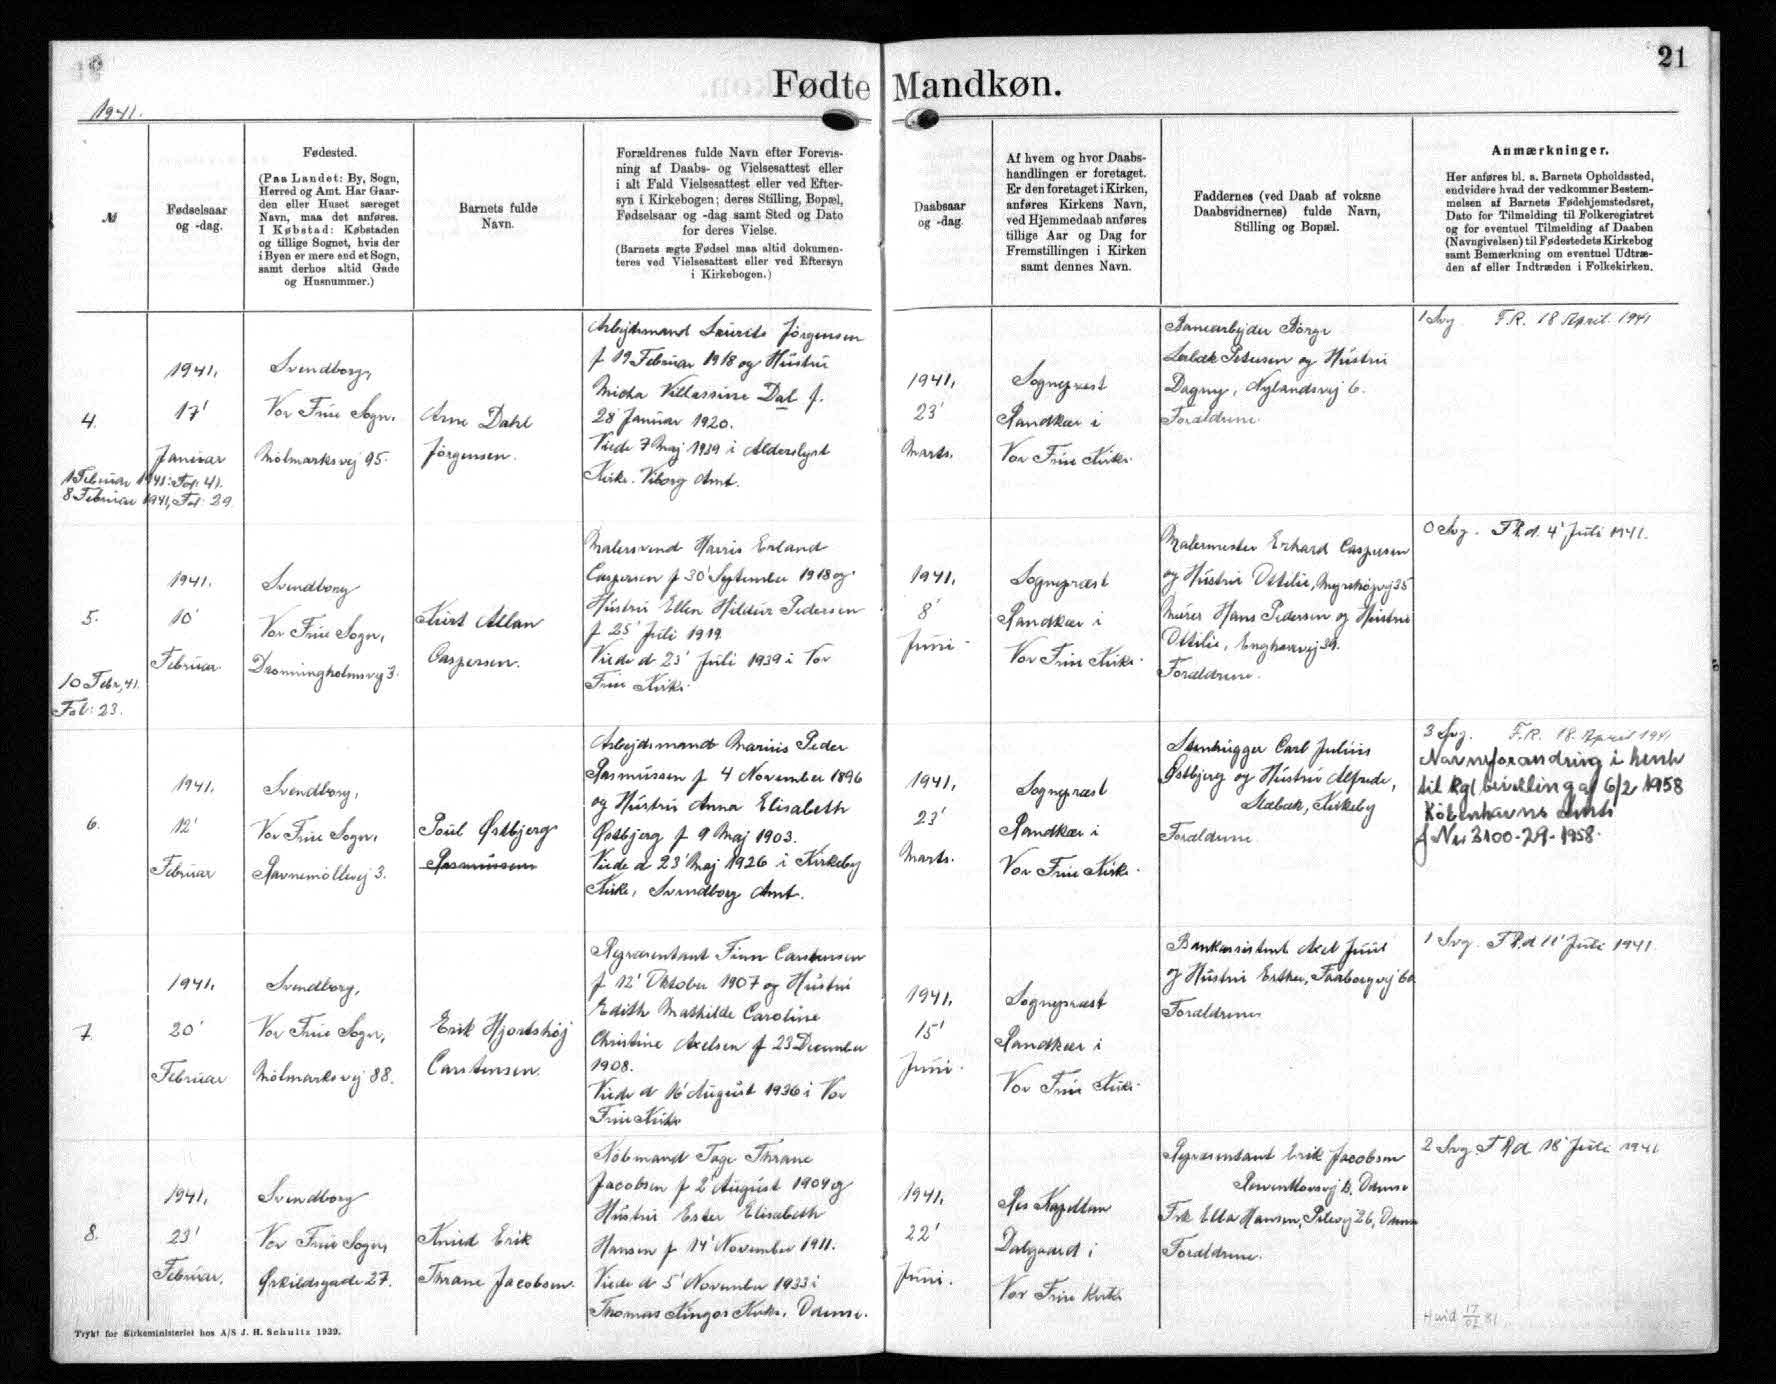 Fødte Mandkøn.
21
1941.
№
Fødselsaar
og -dag.
Fødested.
(Paa Landet: By, Sogn,
Herred og Amt. Har Gaar-
den eller Huset særeget
Navn, maa det anføres.
I Købstad: Købstaden
og tillige Sognet, hvis der
i Byen er mere end et Sogn,
samt derhos altid Gade
og Husnummer.)
Barnets fulde
Navn.
Forældrenes fulde Navn efter Forevis-
ning af Daabs- og Vielsesattest eller
i alt Fald Vielsesattest eller ved Efter-
syn i Kirkebogen; deres Stilling, Bopæl,
Fødselsaar og -dag samt Sted og Dato
for deres Vielse.
(Barnets ægte Fødsel maa altid dokumen-
teres ved Vielsesattest eller ved Eftersyn
i Kirkebogen.)
Daabsaar
og -dag.
Af hvem og hvor Daabs-
handlingen er foretaget.
Er den foretaget i Kirken,
anføres Kirkens Navn,
ved Hjemmedaab anføres
tillige Aar og Dag for
Fremstillingen i Kirken
samt dennes Navn.
Faddernes (ved Daab af voksne
Daabsvidnernes) fulde Navn,
Stilling og Bopæl.
Anmærkninger.
Her anføres bl. a. Barnets Opholdssted,
endvidere hvad der vedkommer Bestem-
melsen af Barnets Fødehjemstedsret,
Dato for Tilmelding til Folkeregistret
og for eventuel Tilmelding af Daaben
(Navngivelsen) til Fødestedets Kirkebog
samt Bemærkning om eventuel Udtræ-
den af eller Indtræden i Folkekirken.
4.
1941,
17'
Januar
1 Februar 1941: Fol: 41.
8 Februar 1941, Fol: 29
Svendborg,
Vor Frue Sogn,
Mølmarksvej 95.
Arne Dahl
Jørgensen.
Arbejdsmand Laurits Jørgensen
f 19 Februar 1918 og Hustru
Micha Villassine Dal f.
28 Januar 1920.
Viede 7 Maj 1939 i Alderslyst
Kirke. Viborg Amt.
1941,
23'
Marts.
Sognepræst
Randkær i
Vor Frue Kirke.
Banearbejder Børge
Lerbæk Petersen og Hustru
Dagny, Nylandsvej 6.
Forældrene
1 Svg F.R. 18 April 1941
5.
1941.
10'
Februar
10 Febr, 41.
Fol: 23.
Svendborg
Vor Frue Sogn,
Dronningholmsvej 3.
Kurt Allan
Caspersen.
Malersvend Harris Erland
Caspersen f 30' September 1918 og
Hustru Ellen Hildur Pedersen
f 25' Juli 1919.
Viede d 23' Juli 1939 i Vor
Frue Kirke.
1941,
8'
Juni
Sognepræst
Randkær i
Vor Frue Kirke.
Malermester Erhard Caspersen
og Hustru Ottilie, Myrehøjvej 35
Murer Hans Pedersen og Hustru
Ottilie, Enghavevej 39.
Forældrene.
0 Svg. F.R.d. 4' Juli 1941.
6.
1941.
12'
Februar
Svendborg,
Vor Frue Sogn,
Ravnemøllevej 3.
Poul Østbjerg
Rasmussen
Arbejdsmand Marius Peder
Rasmussen f 4 November 1896
og Hustru Anna Elisabeth
Østbjerg f 9 Maj 1903.
Viede d 23' Maj 1926 i Kirkeby
Kirke, Svendborg Amt.
1941,
23'
Marts.
Sognepræst
Randkær i
Vor Frue Kirke.
Stenhugger Carl Julius
Østbjerg og Hustru Alfrede,
Stæbæk, Kirkeby
Forældrene.
3 Svg. F.R. 18 April 1941
Navneforandring i henh
til Kgl bevilling af 6/2 1958
Københavns Amts
J Nr. 3100-29-1958.
7.
1941,
20'
Februar
Svendborg,
Vor Frue Sogn,
Mølmarksvej 88.
Erik Hjortshøj
Carstensen.
Repræsentant Finn Carstensen
f 12' Oktober 1907 og Hustru
Edith Mathilde Caroline
Christine Axelsen f 23 December
1908.
Viede d 16' August 1936 i Vor
Frue Kirke
1941,
15'
Juni.
Sognepræst
Randkær i
Vor Frue Kirke.
Bankassistent Axel Juul
og Hustru Esther, Faaborgvej 60
Forældrene
1 Svg. F.R.d 11' Juli 1941.
8.
1941,
23'
Februar.
Svendborg
Vor Frue Sogn,
Ørkildsgade 27.
Knud Erik
Thrane Jacobsen.
Købmand Tage Thrane
Jacobsen f 2' August 1909 og
Hustru Ester Elisabeth
Hansen f 14' November 1911.
Viede d 5' November 1933 i
Thomas Kingos Kirke. Odense.
1941,
22'
Juni.
Res Kapellan
Dalgaard i
Vor Frue Kirke
Repræsentant Erik Jacobsen
13. Odense
Frk Ella Hansen, Pilevej 26, Odense
Forældrene.
2 Svg F.R.d 18' Juli 1941
Hvid 17/02 81
Trykt for Kirkeministeriet hos A/S J. H. Schultz 1939.